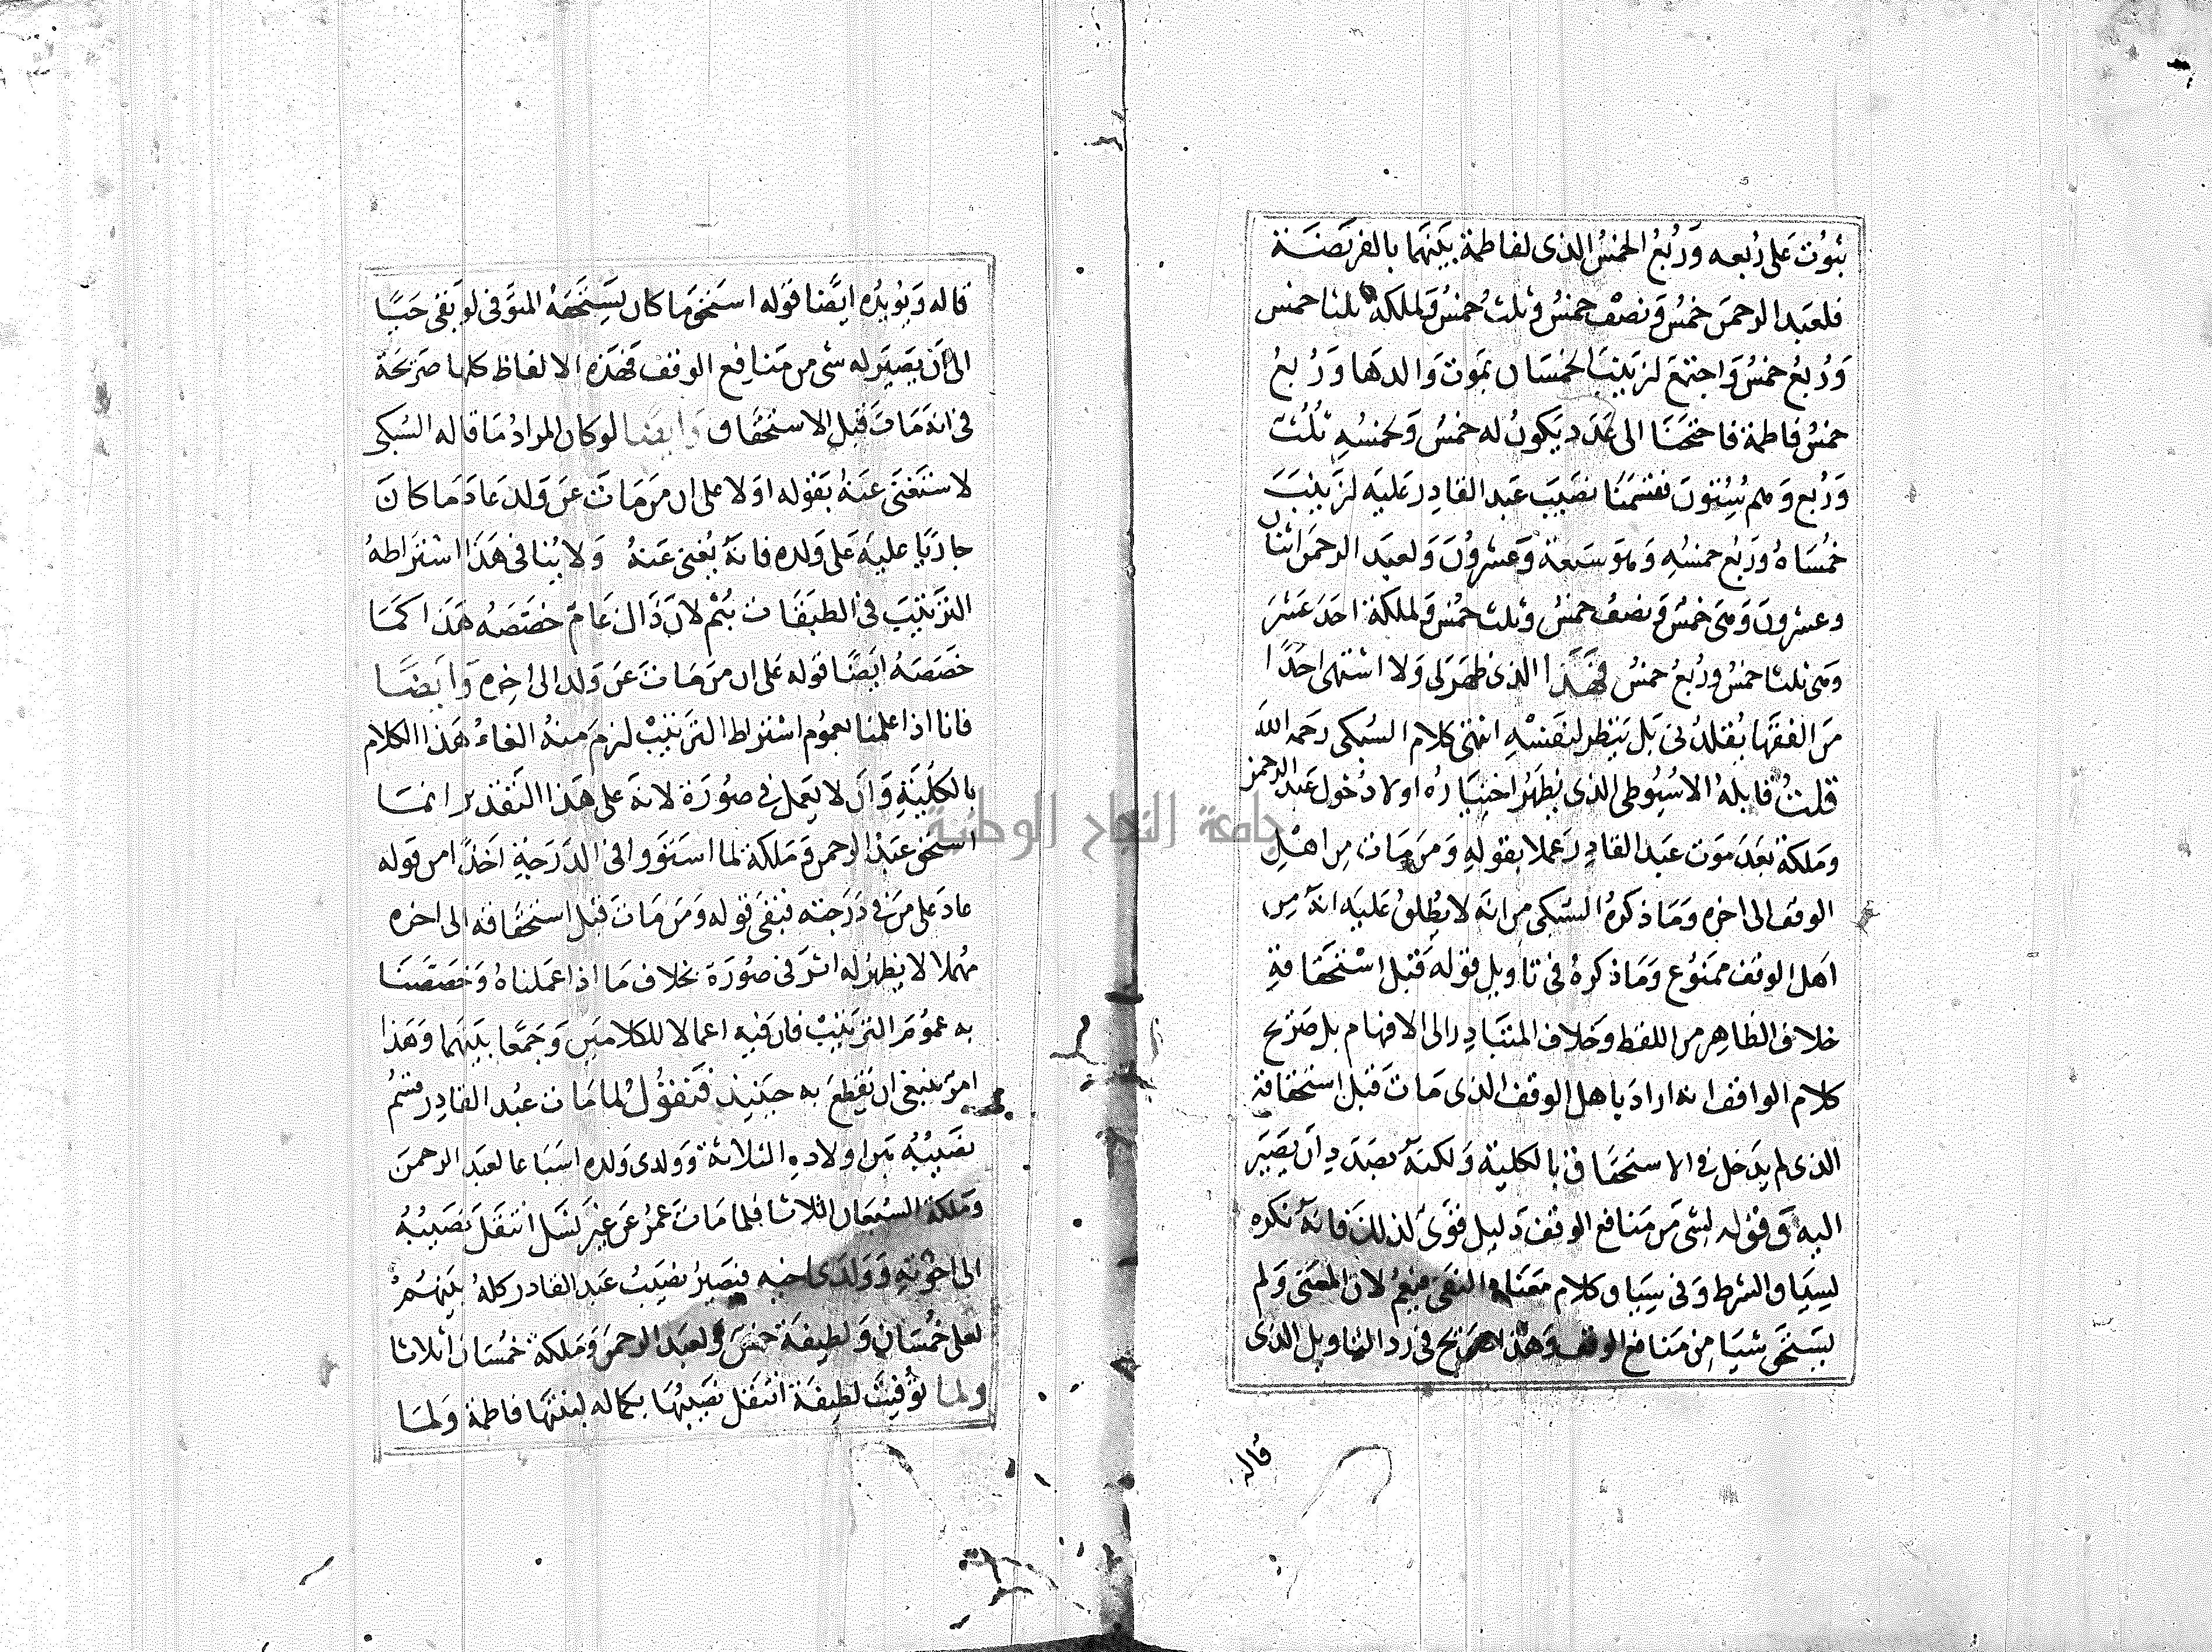 بثبوت على ربعه وربع الخمس الذى لفاطمة بينهما بالفريضة
فلعبد الرحمن خمس ونصف خمس وثلث خمس ولملكة ثلثا خمس
وربع خمس واجتمع لزينب الخمسان بموت والدها وربع
خمس فاطمة فاحتجنا الى عدد يكون له خمس ولخمسه ثلث
وربع وهم ستون فقسمنا نصيب عبد القادر عليه لزينب
خمساه وربع خمسه وهو سبعة وعشرون ولعبد الرحمن اثنان
وعشرون وهى خمس ونصف خمس وثلث خمس ولملكة احد عشر
وهى ثلثا خمس وربع خمس فهذا الذى ظهر لى ولا اشتهى احدا
من الفقها يقلدنى بل ينظر لنفسه انتهى كلام السبكى رحمه الله
قلت قابله الاسيوطى الذى يظهر اختياره اولا دخول عبد الرحمن
وملكة بعد موت عبد القادر عملا بقوله ومن مات من اهل
الوقف الى اخره وما ذكره السبكى من انه لا يطلق عليه انه من
اهل الوقف ممنوع وما ذكره فى تاويل قوله قبل استحقاقة
خلاف الظاهر من اللفظ وخلاف المتبادر الى الافهام بل صريح
كلام الواقف انه اراد باهل الوقف الذى مات قبل استحقاقة
الذى لم يدخل فى الاستحقاق بالكلية ولكنه بصدد ان يصير
اليه وقوله لشى من منافع الوقف دليل قوى لذلك فانه نكره
لسياق الشرط وفى سياق كلام معناه النفى فيعم لان المعنى ولم
يستحق شيا من منافع الوقف وهذا صريح فى رد التاويل الذى
قاله
قاله ويويده ايضا قوله استحق ما كان يستحقه المتوفى لو بقى حيا
الى ان يصير له شى من منافع الوقف فهذه الالفاظ كلها صريحة
فى انه مات قبل الاستحقاق وايضا لو كان المراد ما قاله السبكى
لاستغنى عنه بقوله اولا على ان من مات عن ولد عاد ما كان
جاريا عليه على ولده فانه يغنى عنه ولا ينافى هذا اشتراطه
الترتيب فى الطبقات بثم لان ذاك عام خصصه هذا كما
خصصه ايضا قوله على ان من مات عن ولد الى اخره وايضا
فانا اذا علمنا بعموم اشتراط الترتيب لزم منه الغاء هذا الكلام
بالكلية وان لا يعمل فى صورة لانه على هذا التقدير انما
استحق عبد الرحمن وملكة لما استووا فى الدرجة اخذا من قوله
عاد على من فى درجته فبقى قوله ومن مات قبل استحقاقه الى اخره
مهملا لا يظهر له اثر فى صورة بخلاف ما اذا عملناه وخصصنا
به عموم الترتيب فان فيه اعمالا للكلامين وجمعا بينهما وهذا
امر ينبغى ان يقطع به حينيذ فنقول لما مات عبد القادر قسم
نصيبه بين اولاده الثلاثة وولدى ولده اسباعا لعبد الرحمن
وملكة السبعان اثلاثا فلما مات عمر عن غير نسل انتقل نصيبه
الى اخوته وولدى اخيه فيصير نصيب عبد القادر كله بينهم
لعلى خمسان ولطيفة خمس ولعبد الرحمن وملكة خمسان اثلاثا
ولما توفيت لطيفة انتقل نصيبها بكماله لبنتها فاطمة ولما
جامعة النجاح الوطنية